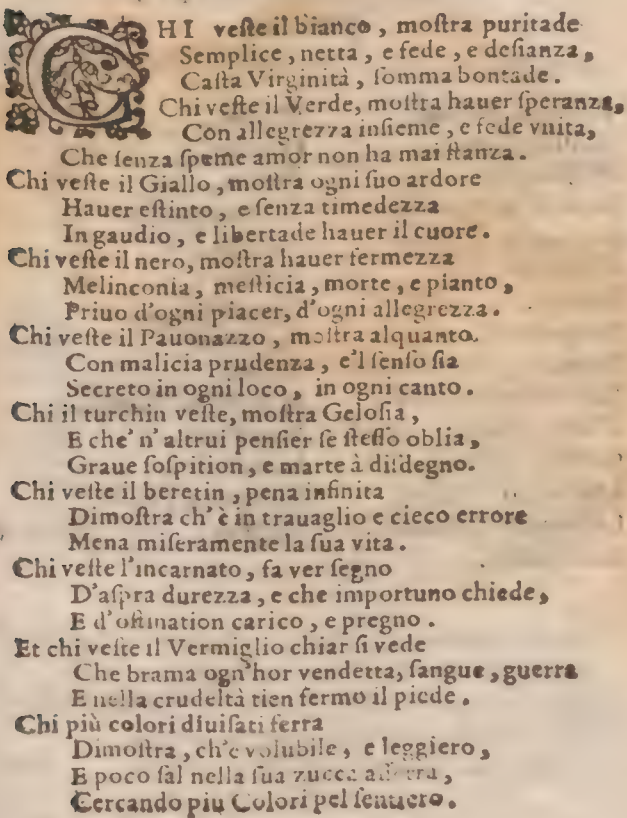 CHI veſte il bianco, moſtra puritade
Semplice, netta, e fede, e deſianza,
Caſta Virginità, ſomma bontade.
Chi veſte il Verde, moſtra hauer ſperanza,
Con allegrezza inſieme, e fede vnita,
Che ſenza ſpeme amor non ha mai ſtanza.
Chi veſte il Giallo, moſtra ogni ſuo ardore
Hauer eſtinto, e ſenza timedezza
In gaudio, e libertade hauer il cuore.
Chi veſte il nero, moſtra hauer fermezza
Melinconia, meſticia, morte, e pianto,
Priuo d'ogni piacer, d'ogni allegrezza.
Chi veſte il Pauonazzo, moſtra alquanto.
Con malicia prudenza, e'l ſenſo ſia
Secreto in ogni loco, in ogni canto.
Chi il turchin veſte, moſtra Geloſia,
E che'n'altrui penſier ſe ſteſſo oblia,
Graue ſoſpition, e marte à diſdegno.
Chi veſte il beretin, pena infinita
Dimoſtra ch'è in trauaglio e cieco errore
Mena miſeramente la ſua vita.
Chi veſte l'incarnato, fa ver ſegno
D'aſpra durezza, e che importuno chiede,
E d'oſtination carico, e pregno.
Et chi veſte il Vermiglio chiar ſi vede
Che brama ogn'hor vendetta, ſangue, guerra
E nella crudeltà tien fermo il piede.
Chi più colori diuiſati ferra
Dimoſtra, ch'è volubile, e leggiero,
E poco ſal nella ſua zucca
Cercando piu Colori pel ſentiero.